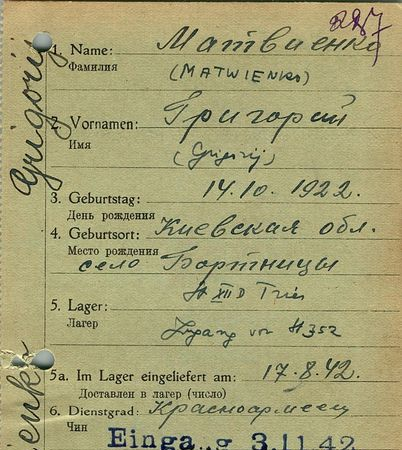 227
1. Name: Матвиенко
Фамилия (MATWIENKO)
2. Vornamen: Григорий
Имя (Grigorij)
3. Geburtstag: 14.10.1922.
День рождения
4. Geburtsort: Киевская обл.
Место рождения
село Бортницы
XII D Trier
5. Lager:
Лагерь Zugang von 352
5a. Im Lager eingeliefert am: 17.8.42.
Доставлен в лагерь (число)
6. Dienstgrad: Красноармеец
Чин
Eingang 3.11.42
Grigorij